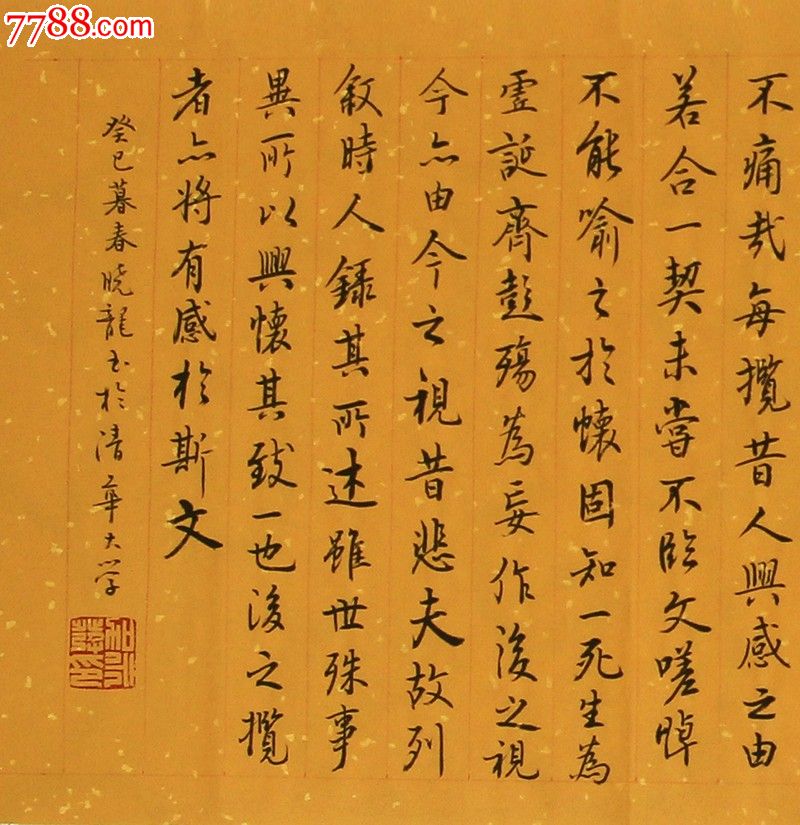 7788.com
不痛哉每攬昔人興感之由
若合一契未嘗不臨文嗟悼
不能喻之於懷固知一死生為
虛誕齊彭殤為妄作後之視
今亦由今之視昔悲夫故列
敘時人錄其所述雖世殊事
異所以興懷其致一也後之攬
者亦將有感於斯文
癸巳暮春曉龍书於清華大学